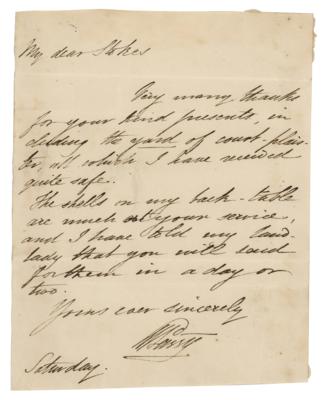 My dear Stokes
Very many thanks
for your kind presents, in
cluding the yard of court plais-
ter, all which I have received
quite safe.
The shells on my back-table
are much at your service,
and I have told my land-
lady that you will send
for them in a day or
two.
Yours ever sincerely
Saturday.